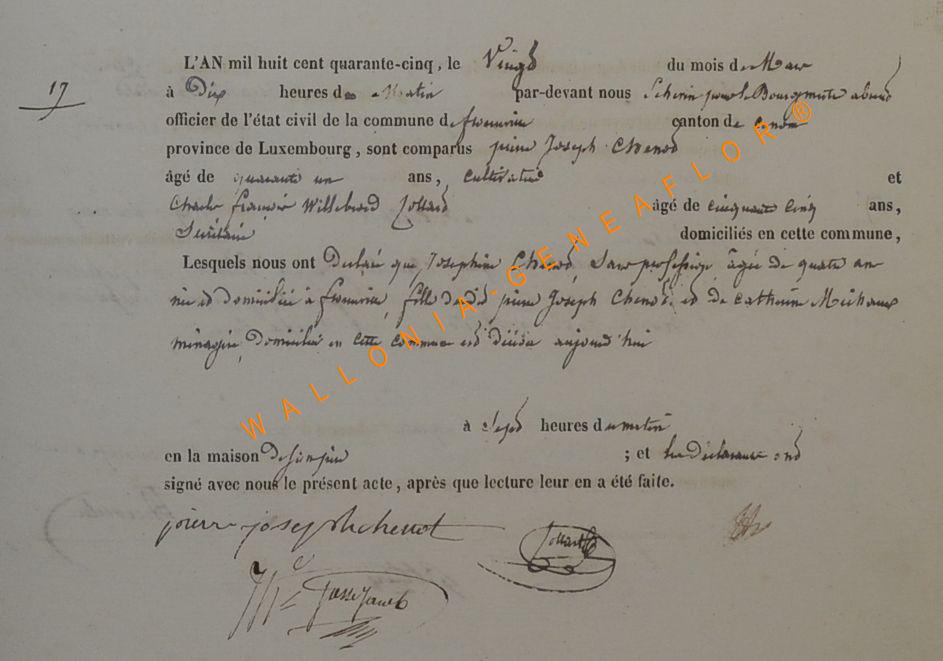 L'AN mil huit cent quarante-cinq, le Vingt du mois de Mars
17
à Dix heures du Matin par-devant nous Echevin pour le Bourgmestre absent
officier de l'état civil de la commune de canton de
province de Luxembourg, sont comparus pierre Joseph Chenot
âgé de quarante un ans, cultivateur et
Charles françois Willebrord Jottard âgé de cinquante cinq ans,
Secrétaire domiciliés en cette commune,
Lesquels nous ont Declaré que Josephine Chenot Sans profession âgée de quatre ans
née et domiciliée à fille dudit pierre Joseph Chenot et de Catherine Michaux
ménagère, Domiciliée en cette commune est décédée aujourd'hui
à Sept heures du matin
en la maison de son père ; et les Déclarans ont
signé avec nous le présent acte, après que lecture leur en a été faite.
pierre joseph chenot
Jottard
WALLONIA-GENEAFLOR®